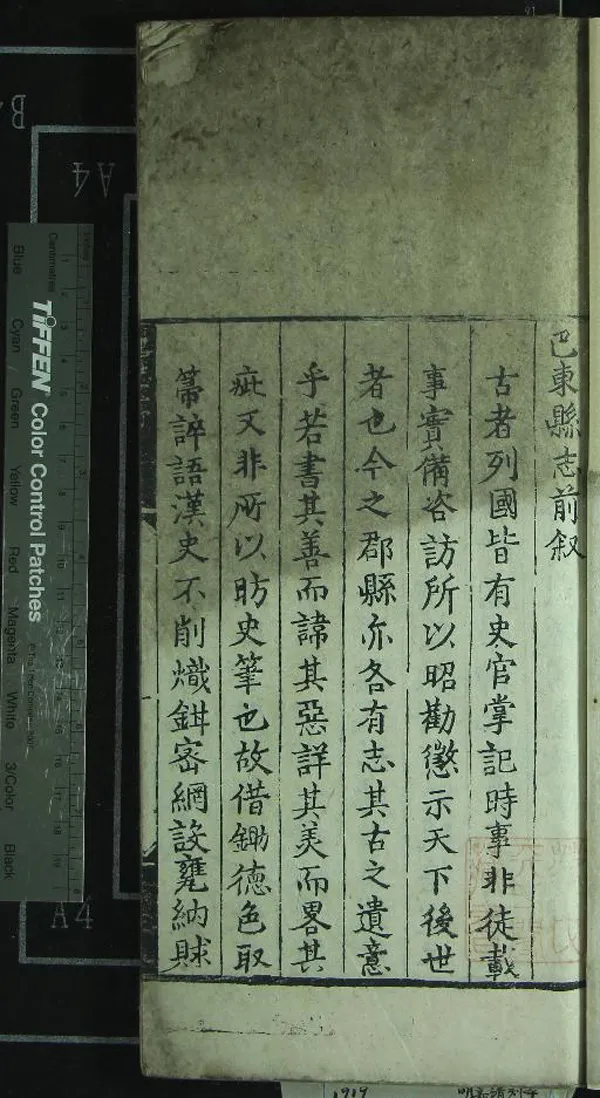 巴東縣志前叙
古者列國皆有史官掌記時事非徒載
事實備咨訪所以昭勸懲示天下後世
者也今之郡縣亦各有志其古之遺意
乎若書其善而諱其惡詳其美而畧其
疵又非所以昉史筆也故借鋤德色取
箒誶語漢史不削熾鉗密網設甕納賕
B4
A4
A4
TIFFEN Color Control Patches
Centimetres
Blue
Cyan
Green
Yellow
Red
Magenta
White
3/Color
Black
1919